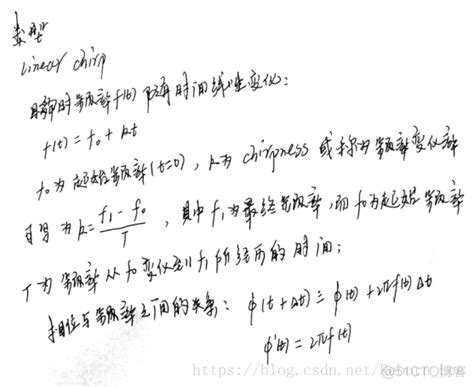 类型
Linear chirp
瞬时频率f(t)随时间线性变化:
f(t) = f₀ + kt
f₀为起始频率(t=0), k为 chirpness 或称为频率变化率
可写为 k = (f₁ - f₀)/T , 其中 f₁为最终频率, 而 f₀为起始频率
T 为频率从 f₀ 变化到 f₁ 所经历的时间;
相位与频率之间的关系: φ(t+Δt) = φ(t) + 2πf(t)Δt
φ'(t) = 2πf(t)
https://blog.csdn.net/
@51CTO博客